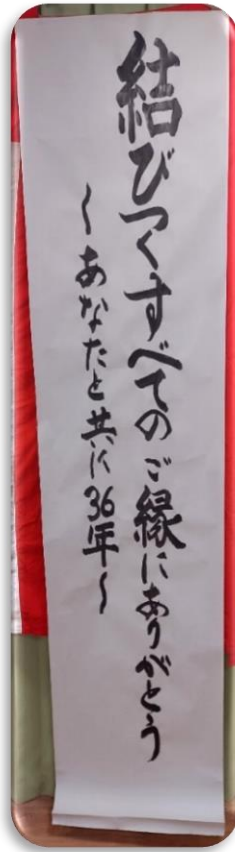 結びつくすべてのご縁にありがとう
～あなたと共に36年～